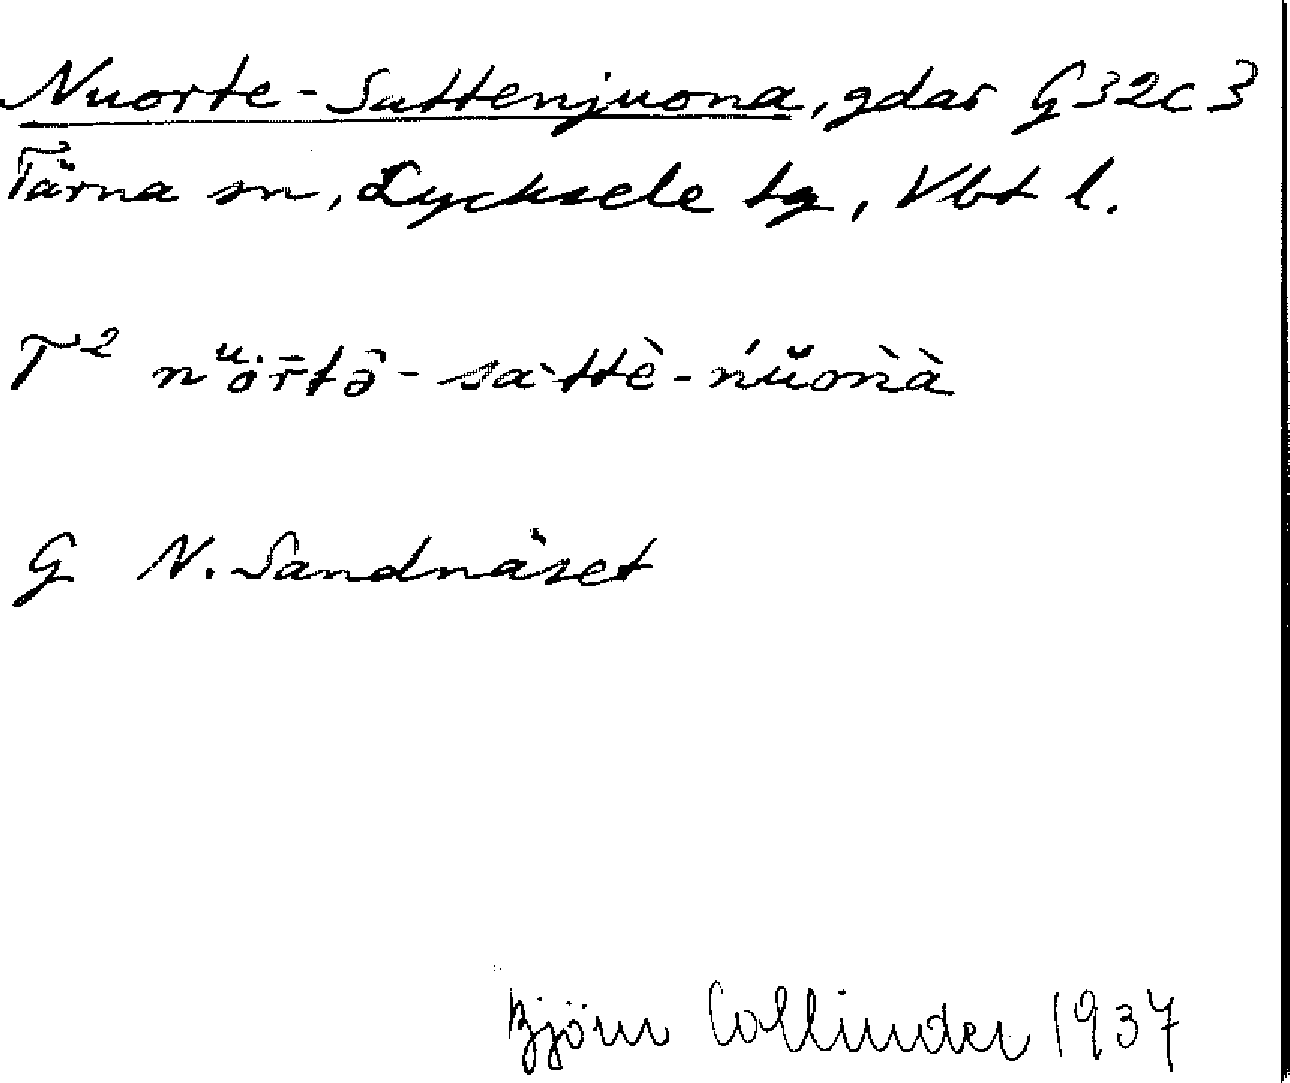 Nuorte-Sattenjuona, gdar G 32 C 3
Tärna sn, Lycksele tg, Vbt l.
T² nᵘȯr̄tə̑ - sa`ttè - ńŭoǹà
G N. Sandnäset
Björn Collinder 1937